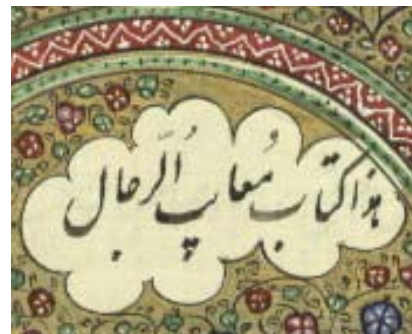 هذا کتاب مُعایب اُلرّجال